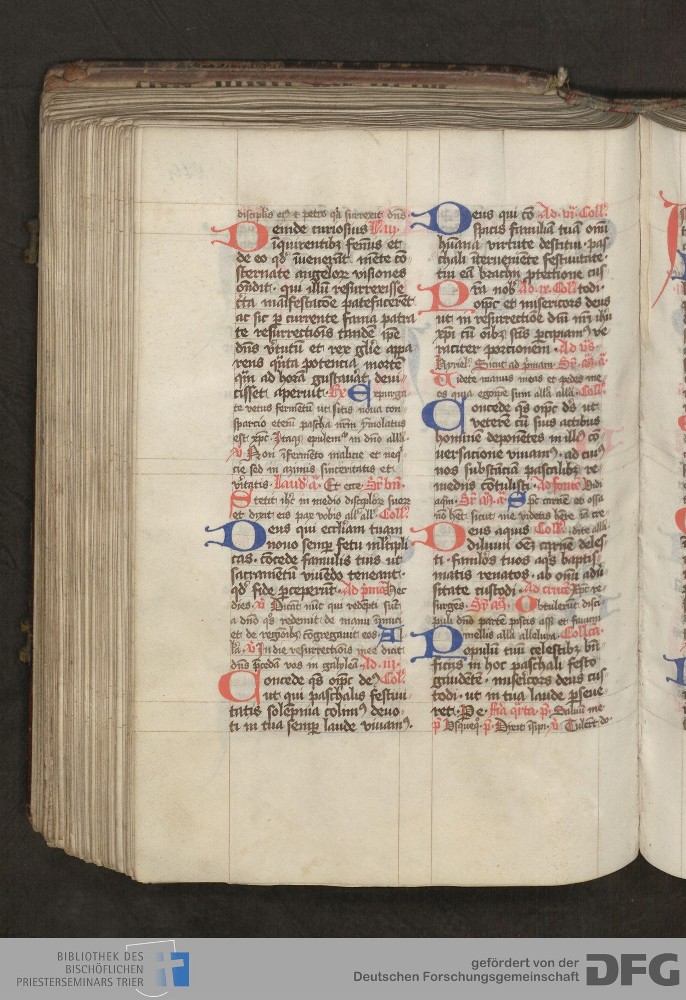 discipulis eius et petro quia surrexit dns
Deinde curiosius V. iii.
inquirentibus feminis et
de eo qd inuenerant mente co
sternate angelorum visiones
ondit qui illum resurrexisse
certa manifestatione patefacerent
ac sic per currente fama patra
te resurrectionis tandem ipse
dns virtutum et rex glorie appa
rens quanta potencia morte
quam ad horam gustauerat deui
cisset aperuit. Rx Expurga
te vetus fermentum ut sitis noua con
sparcio etenim pascha nrm ymolatus
est xpc Itaque epulemur in dno alla
V Non in fermento malicie et neq
cie sed in azimis sinceritatis et
veritatis. Laud a. Et ecce
Stetit ihc in medio discipulorum suorum
et dixit eis pax vobis alla all. Coll.
Deus qui ecclesiam tuam
nouo semper fetu multipli
cas concede famulis tuis ut
sacramentum viuendo teneant
qd fide perceperunt. Ad prima Hec
dies. V Dicant nunc qui redempti sunt
a dno quos redemit de manu inimici
et de regionibus congregauit eos. A
la. V In die resurrectionis mee dicit
dns precedam vos in galyleam. Ad iii.
Concede qs omps deus Coll.
ut qui paschalis festiui
tatis solempnia colimus deuo
ti in tua semper laude viuamus.
Deus qui co Ad vi. Coll.
spicis familiam tuam omni
humana virtute destitui pas
chali interueniente festiuitate
tui eam brachii protectione cus
Presta nobis Ad ix. Coll. todi.
omps et misericors deus
ut in resurrectione dni nri ihu
xpi cum omnibus sanctis percipiamus ve
raciter portionem. Ad vs
Kyriel. Sicut ad primam.
Videte manus meas et pedes me
os quia ego ipse sum alla alla. Coll.
Concede qs omps ds ut
veterem cum suis actibus
hominem deponentes in illius co
uersatione viuamus ad cuius
nos substanciam paschalibus re
mediis contulisti.
spc carnem et ossa
non habet sicut me videtis habere
Deus aquis Coll. dite alla
diluuii oem carnem deles
ti famulos tuos aqs baptis
matis renatos ab omni adu
sitate custodi. Ad crucem Xpc re
surgens. Optulerunt disci
puli dno partem piscis assi et fauum
mellis alla alleluya. Collecta.
Populum tuum celestibus bn
ficiis in hoc paschali festo
gaudentem misericors deus cus
todi ut in tua laude perseue
ret. Pe. Feria quarta p. Saluum me
p Vsquequo p Dixit insipi. V Tulerunt do
BIBLIOTHEK DES
BISCHÖFLICHEN
PRIESTERSEMINARS TRIER
gefördert von der
Deutschen Forschungsgemeinschaft
DFG